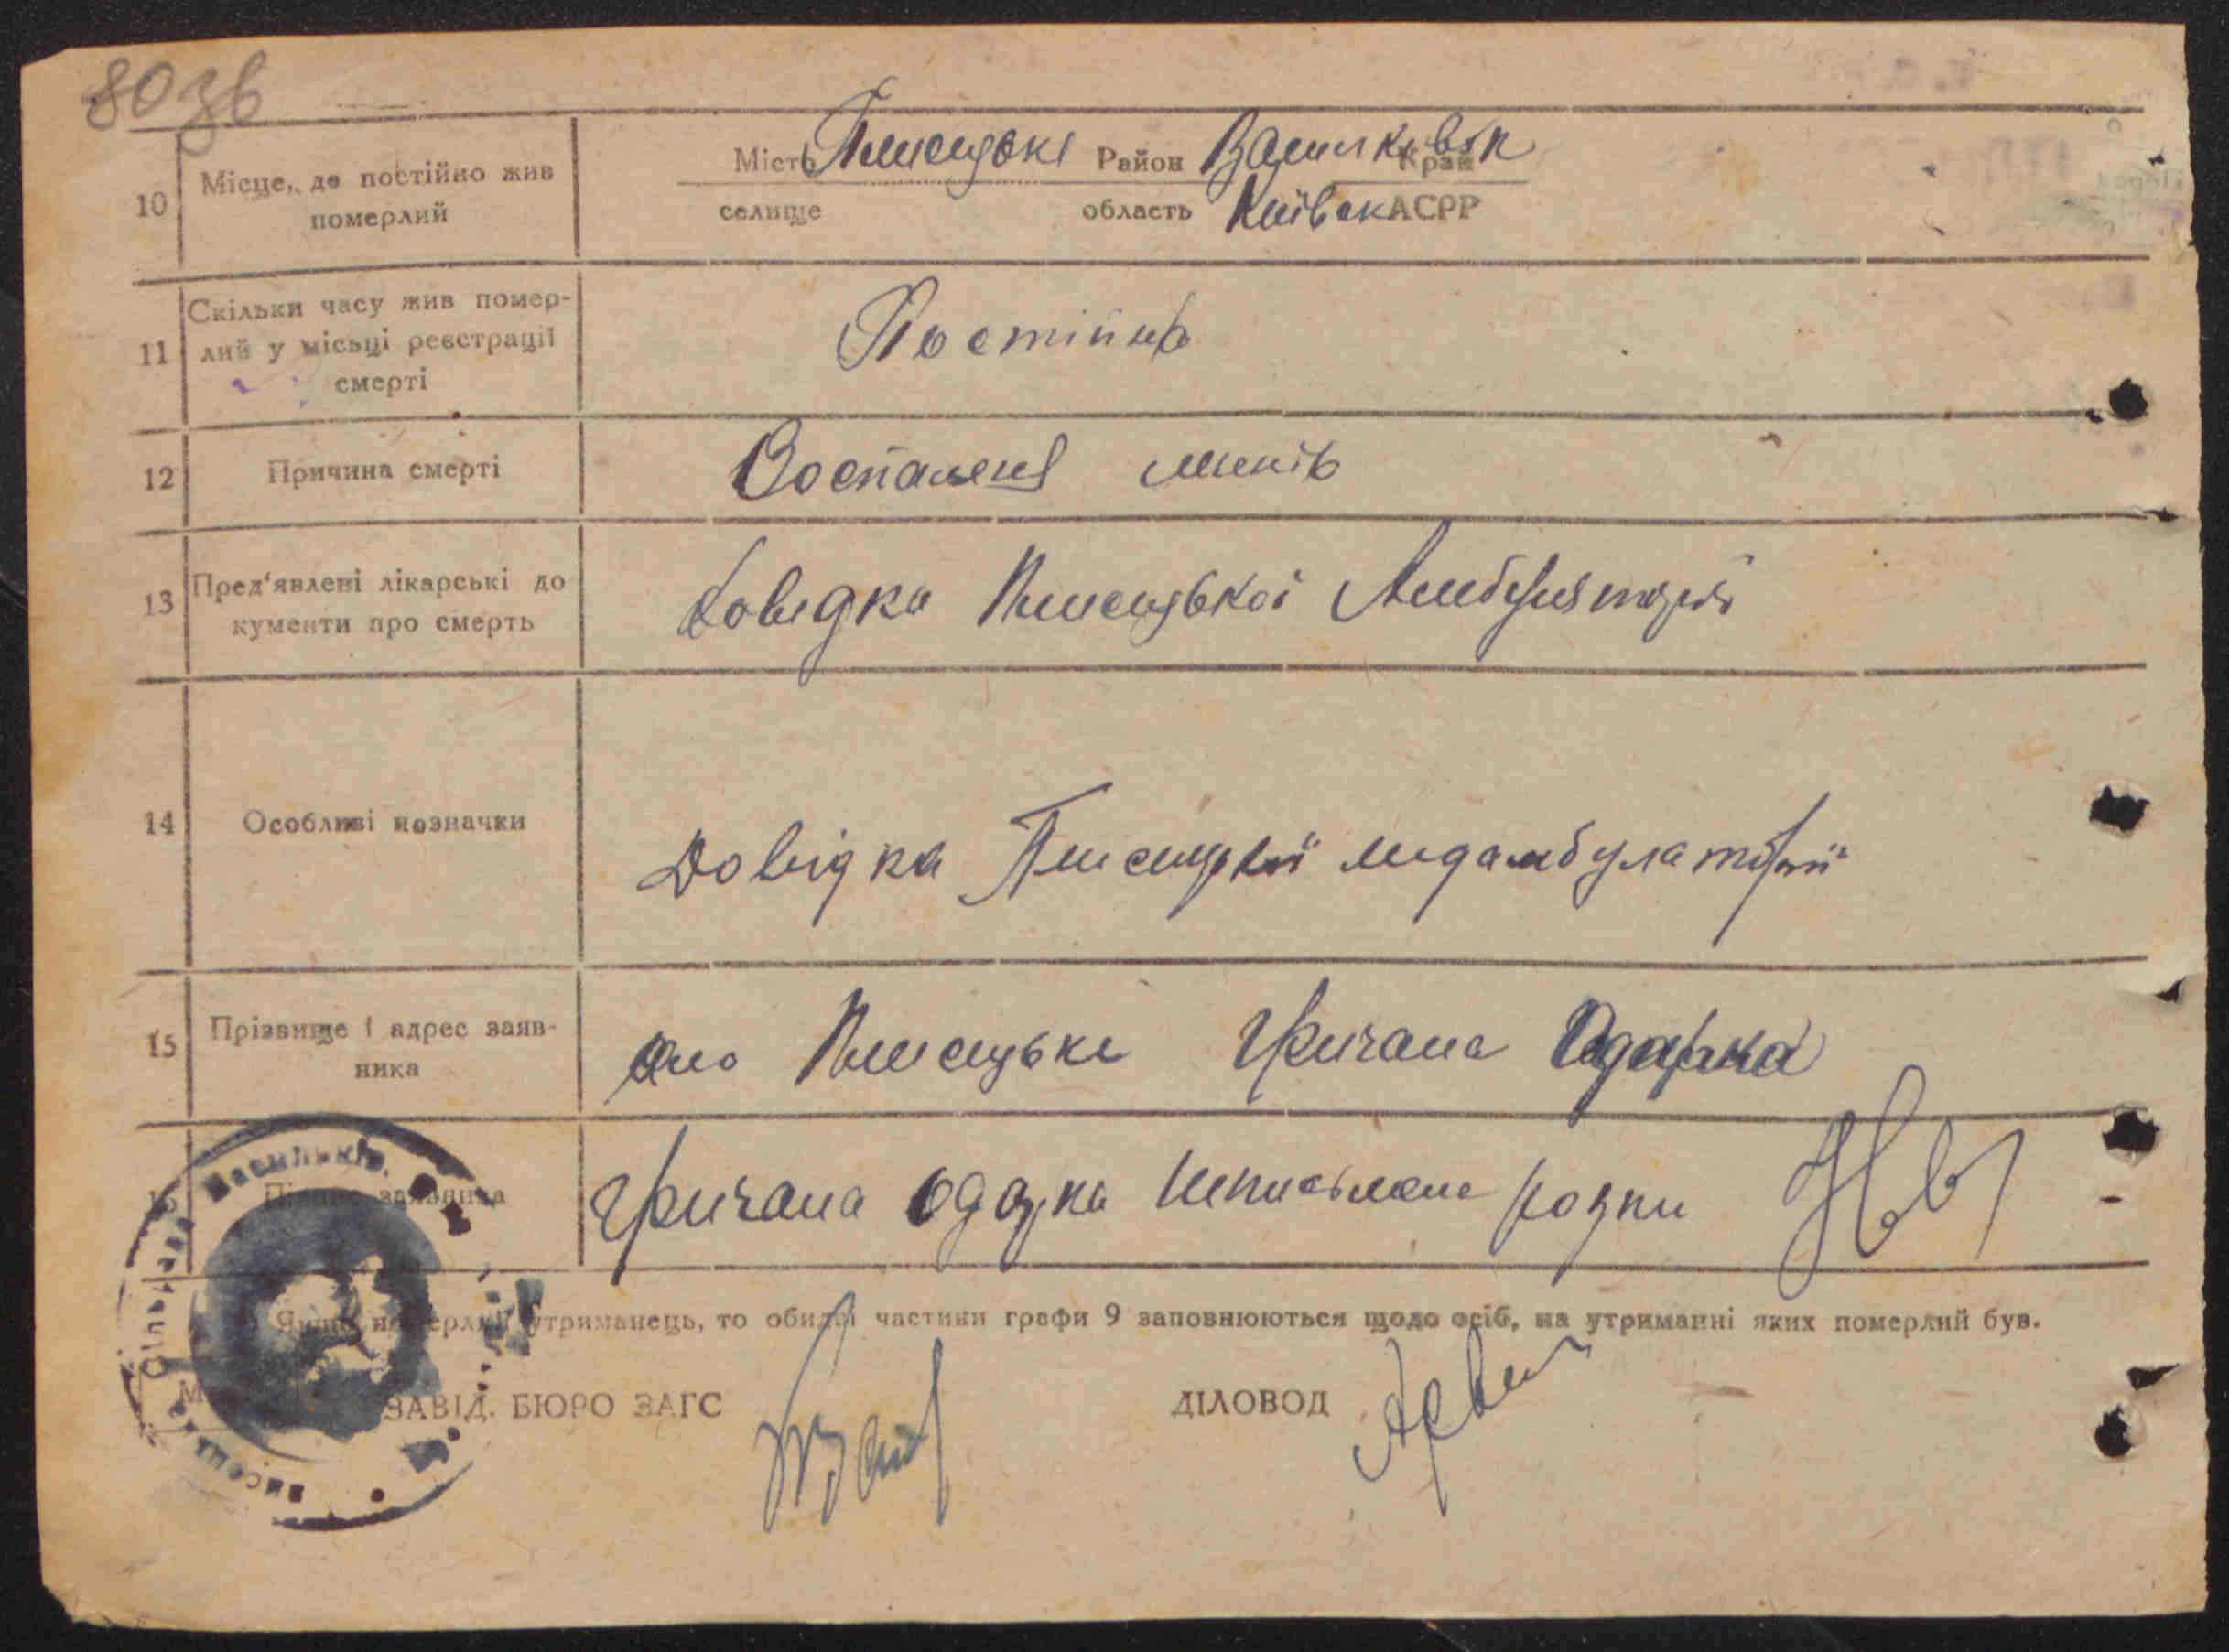 80зв
10 Місце, де постійно жив померлий
Місто Плисецьке Район Васильківск Край
селище область Київск АСРР
11 Скільки часу жив помер-
лий у місьці реєстрації
смерті
Постійно
12 Причина смерті Воспаленя легенів
13 Пред'явлені лікарські до
кументи про смерть
Довідка Плисецької Амбуляторії
14 Особливі позначки Довідка Плисецької медамбулаторії
15 Прізвище і адрес заяв-
ника
село Плисецьке Гричана Одарка
16 Підпис заявника Гричана Одарка неписьмена
Якщо померлий утриманець, то обидві частини графи 9 заповнюються щодо осіб, на утриманні яких померлий був.
ЗАВІД. БЮРО ЗАГС ДІЛОВОД